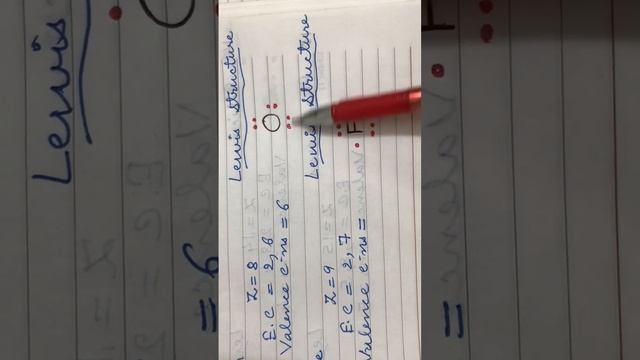 Lewis Structure
Z = 8
E.C = 2, 6
Valence e-ns = 6
O
Lewis Structure
Z = 9
E.C = 2, 7
Valence e-ns =
F
Lewis
= 6